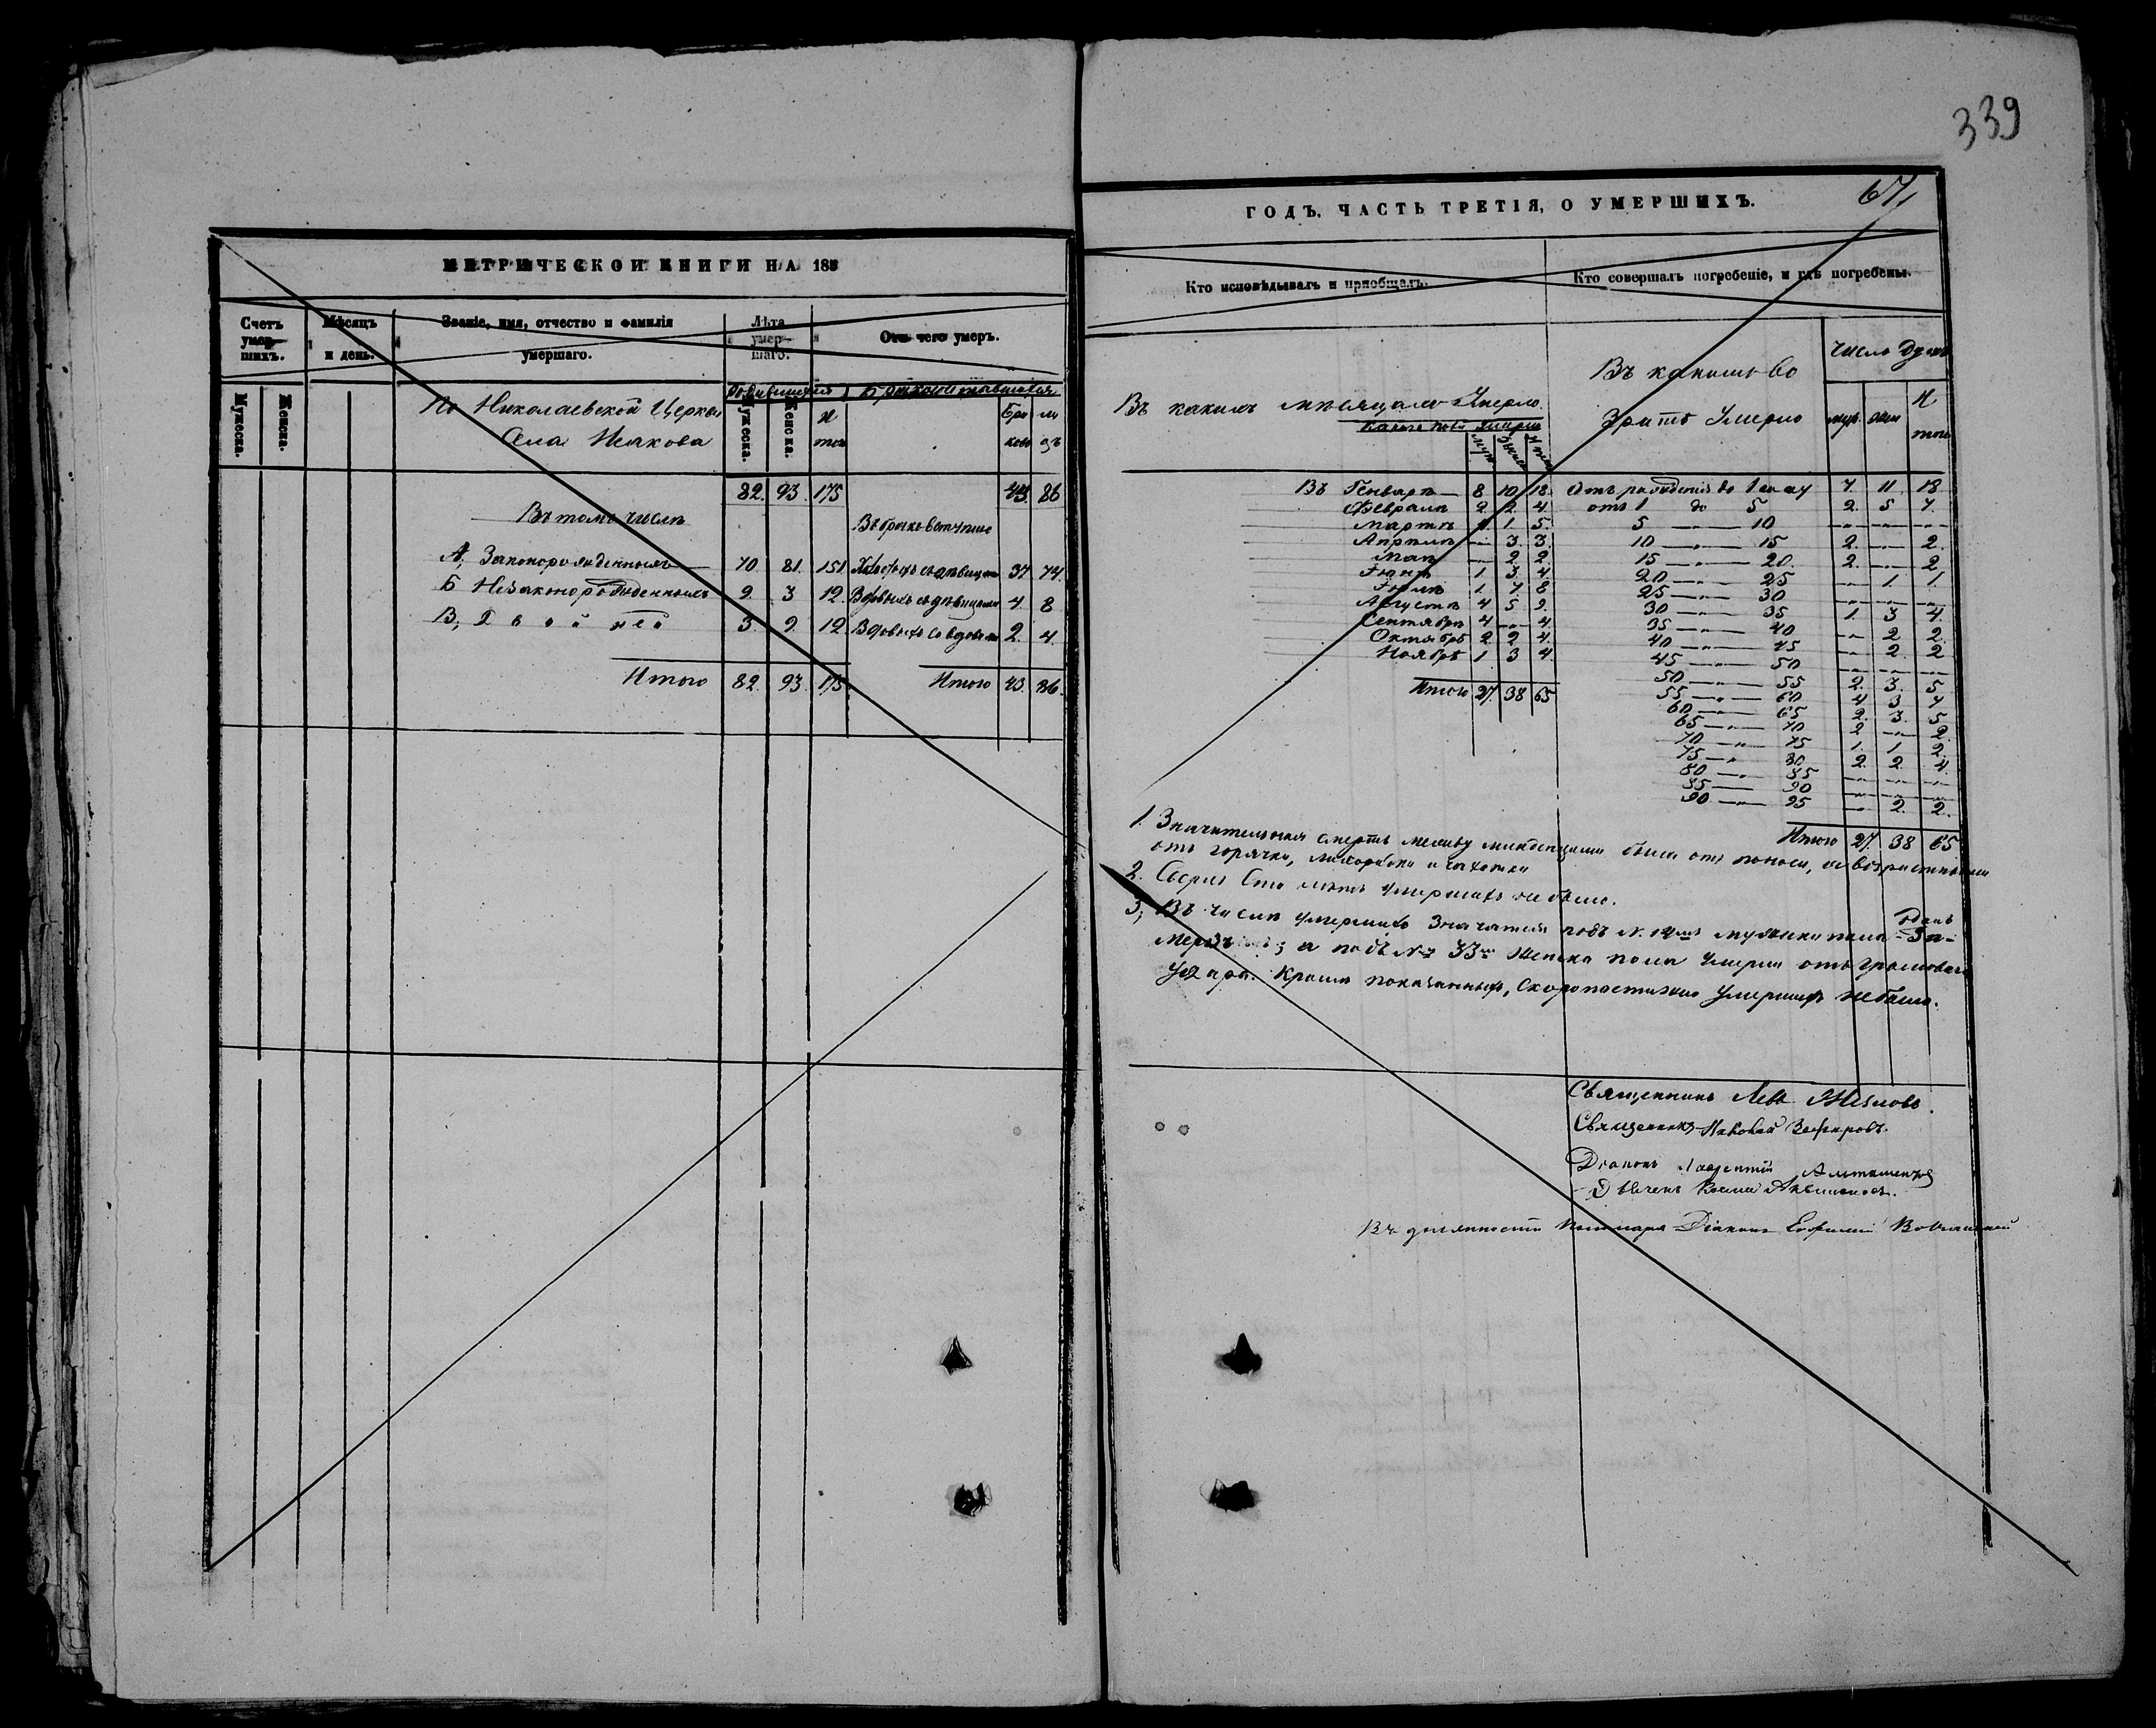 339
МЕТРИЧЕСКОЙ КНИГИ НА 185
Счетъ умер-шихъ.
Мѣсяцъ и день.
Званіе, имя, отчество и фамилія умершаго.
Лѣта умер-шаго.
Отъ чего умеръ.
Мужеска.
Женска.
По Николаевской Церкви
Села
родившихся
Мужеска.
Женска.
Итого
Бракосочетавшихся
Бра ли
ковъ цъ
82. 93. 175
43. 86
Въ томъ числѣ
Въ бракъ вступило
А, Законорожденныхъ 70. 81. 151
Холостыхъ съ дѣвицами 37 74.
Б Незаконорожденныхъ 9. 3 12.
Вдовыхъ съ дѣвицами 4. 8
В, Двойней 3. 9. 12
Вдовыхъ со вдовами 2. 4.
Итого 82. 93. 175
Итого 43. 86.
ГОДЪ, ЧАСТЬ ТРЕТІЯ, О УМЕРШИХЪ.
67,
Кто исповѣдывалъ и пріобщалъ.
Кто совершалъ погребеніе, и гдѣ погребены.
Въ какихъ мѣсяцахъ Умерло.
муж женс Итого
Въ Генварѣ 8 10 18.
Февралѣ 2 2 4.
Мартѣ 4. 1. 5.
Апрѣлѣ — 3. 3.
Маѣ — 2. 2.
Іюнѣ 1. 3. 4.
Іюлѣ 1. 7. 8
Августѣ 4 5 9.
Сентябрѣ 4 — 4.
Октябрѣ 2. 2. 4.
Ноябрѣ 1 3 4.
Итого 27. 38 65
Въ какомъ во
зрастѣ Умерло
Число Душъ
муж. жен Итого
Отъ рожденія до 1 году 7. 11. 18
отъ 1 до 5 2. 5 7.
5 — 10 — — —
10 — 15 2. — 2.
15 — 20. 2. — 2
20 — 25 — 1 1.
25 — 30 — — —
30 — 35 1. 3 4.
35 — 40 — 2 2.
40 — 45 — 2. 2
45 — 50 — — —
50 — 55 2. 3. 5.
55 — 60 4 3 7
60 — 65 2. 3. 5
65 — 70 2 — 2.
70 — 75 1. 1 2.
75 — 80 2. 2. 4.
80 — 85 — — —
85 — 90 — — —
90 — 95 — 2. 2.
Итого 27. 38 65
1. Значительная смерть между младенцами была отъ поноса, а возрастными
отъ горячки, лихорадки и чахотки
2. Сверхъ Ста лѣтъ умершихъ не было.
3, Въ числѣ умершихъ Значатся подъ №. мужеска пола Одинъ За-
мерзшій, а подъ № 33мъ Женска пола Умерла отъ громоваго
Удара. Кромѣ показанныхъ, Скоропостижно Умершихъ не было.
Священникъ Левъ
Священникъ Николай Зефировъ.
Діаконъ Лаврентій
Дьячекъ Косма
Въ должности Пономаря Діаконъ Евфимій